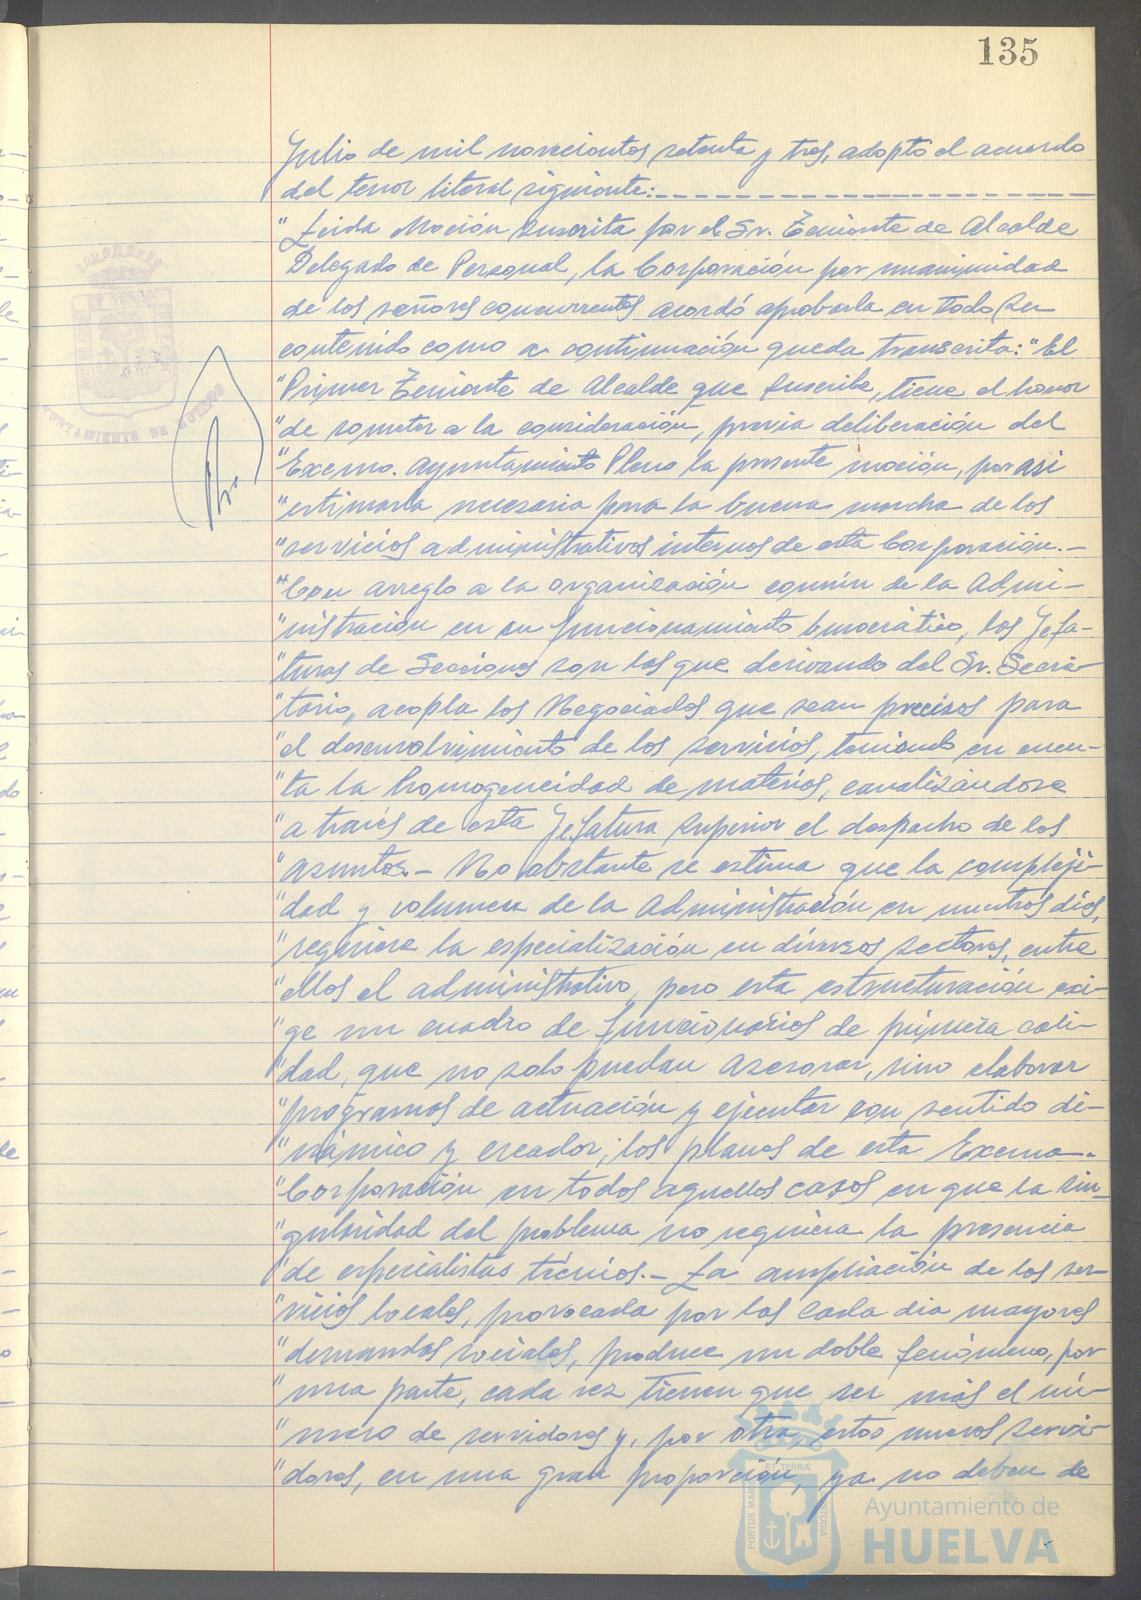 135
Julio de mil novecientos setenta y tres, adoptó el acuerdo
del tenor literal siguiente:
"Leida Moción suscrita por el Sr. Teniente de Alcalde
Delegado de Personal, la Corporación por unanimidad
de los señores concurrentes acordó aprobarla en todo su
contenido como a continuación queda transcrita: "El
"Primer Teniente de Alcalde que suscribe, tiene el honor
"de someter a la consideración, previa deliberación del
"Excmo. Ayuntamiento Pleno la presente moción, por asi
"estimarla necesaria para la buena marcha de los
"servicios administrativos internos de esta Corporación.-
"Con arreglo a la organización común de la Admi-
"nistración en su funcionamiento burocrático, los Jefa-
"turas de Secciones son los que derivando del Sr. Secre-
"tario, acopla los Negociados que sean precisos para
"el desenvolvimiento de los servicios, teniendo en cuen-
"ta la homogeneidad de materias, canalizándose
"a través de esta Jefatura Superior el despacho de los
"asuntos.- No obstante se estima que la compleji-
"dad y volumen de la Administración en nuestros dias,
"requiere la especialización en diversos sectores, entre
"ellos el administrativo, pero esta estructuración exi-
"ge un cuadro de funcionarios de primera cali-
"dad, que no solo puedan asesorar, sino elaborar
"programas de actuación y ejecutar con sentido di-
"námico y creador, los planes de esta Excma.
"Corporación en todos aquellos casos en que la sin-
"gularidad del problema no requiera la presencia
"de especialistas técnicos.- La ampliación de los ser-
"vicios locales, provocada por las cada dia mayores
"demandas sociales, produce un doble fenómeno, por
"una parte, cada vez tienen que ser más el nú-
"mero de servidores y, por otra, estos nuevos servi-
"dores, en una gran proporción, ya no deben de
AYUNTAMIENTO DE HUELVA
PORTUS MARIS ET TERRAE CUSTODIA
Ayuntamiento de
HUELVA